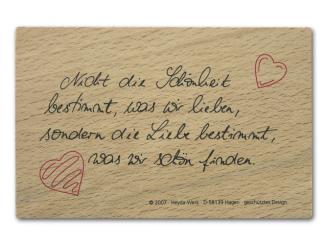 Nicht die Schönheit
bestimmt, was wir lieben,
sondern die Liebe bestimmt,
was wir schön finden.
© 2007 · Heyda-Werk · D-58139 Hagen · geschütztes Design